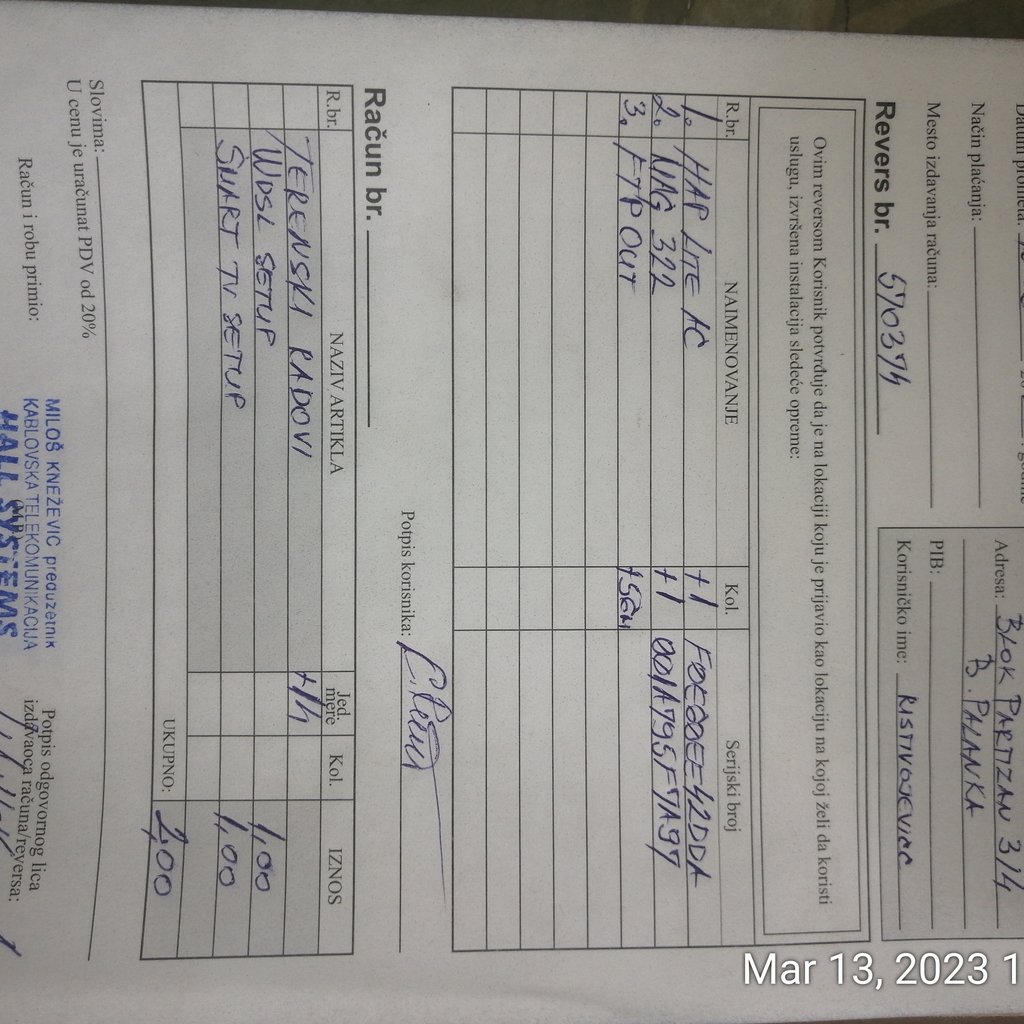 Datum prometa:
Način plaćanja:
Mesto izdavanja računa:
Adresa: BLOK PARTIZAN 3/4
B. PALANKA
PIB:
Korisničko ime: RISTIVOJEVICC
Revers br. 570374
Ovim reversom Korisnik potvrđuje da je na lokaciji koju je prijavio kao lokaciju na kojoj želi da koristi
uslugu, izvršena instalacija sledeće opreme:
R.br. NAIMENOVANJE Kol. Serijski broj
1. HAP LITE AC +1
2. MAG 322 +1 001A795F7A97
3. FTP OUT
Potpis korisnika:
Račun br.
R.br. NAZIV ARTIKLA Jed. mere Kol. IZNOS
TERENSKI RADOVI +1h
WDSL SETUP 1,00
SMART TV SETUP 1,00
UKUPNO: 2,00
Slovima:
U cenu je uračunat PDV od 20%
Račun i robu primio:
MILOŠ KNEŽEVIĆ preduzetnik
KABLOVSKA TELEKOMUNIKACIJA
HALL SYSTEMS
(M.P.)
Potpis odgovornog lica
izdavaoca računa/reversa:
Mar 13, 2023 1